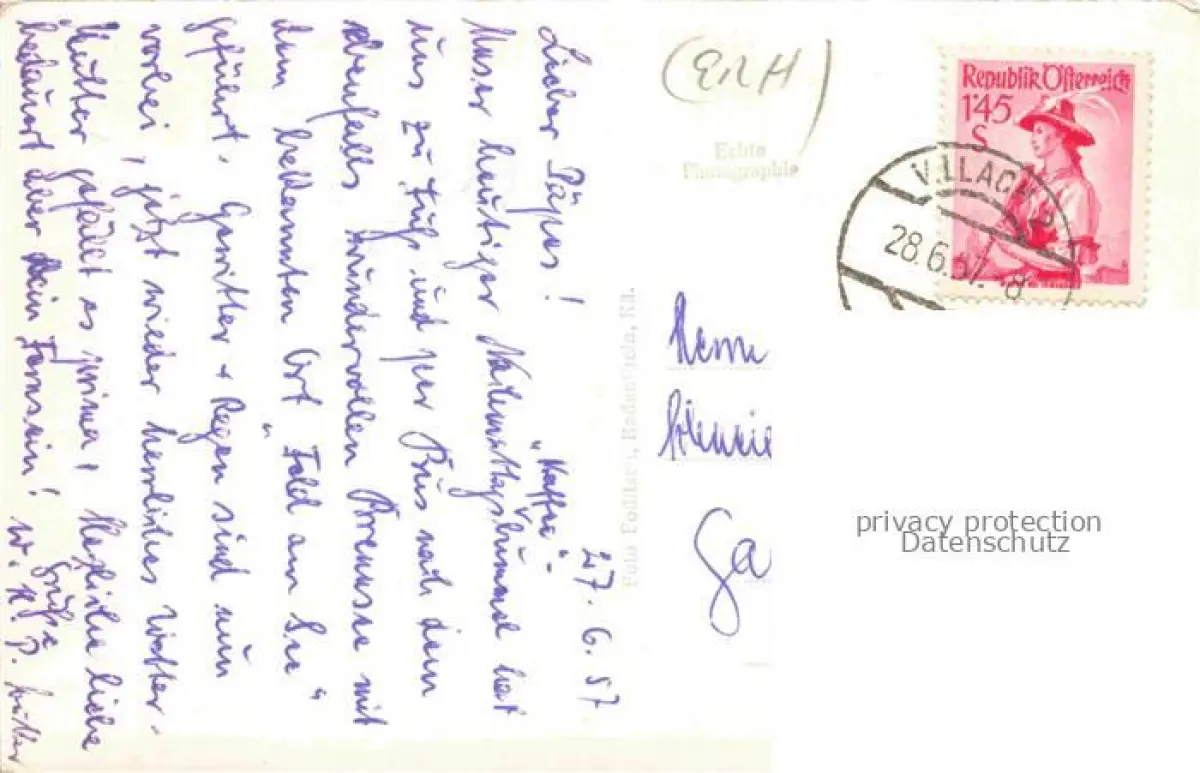 27.6.57
Lieber Papa!
"Kaffee"-
Unser heutiger Nachmittagsbummel hat
uns zu Fuß und per Bus nach dem
ebenfalls wundervollen Brennsee mit
dem bekannten Ort "Feld am See"
geführt. Gewitter + Regen sind nun
vorbei, jetzt wieder herrliches Wetter.
Mutter gefällt es prima, Herzliche liebe
bedauert aber Dein Fernsein! Grüße
(ERH)
Echte
Photographie
Republik Österreich
1'45
S
VILLACH 2
28.6.57. 8
Herrn
privacy protection
Datenschutz